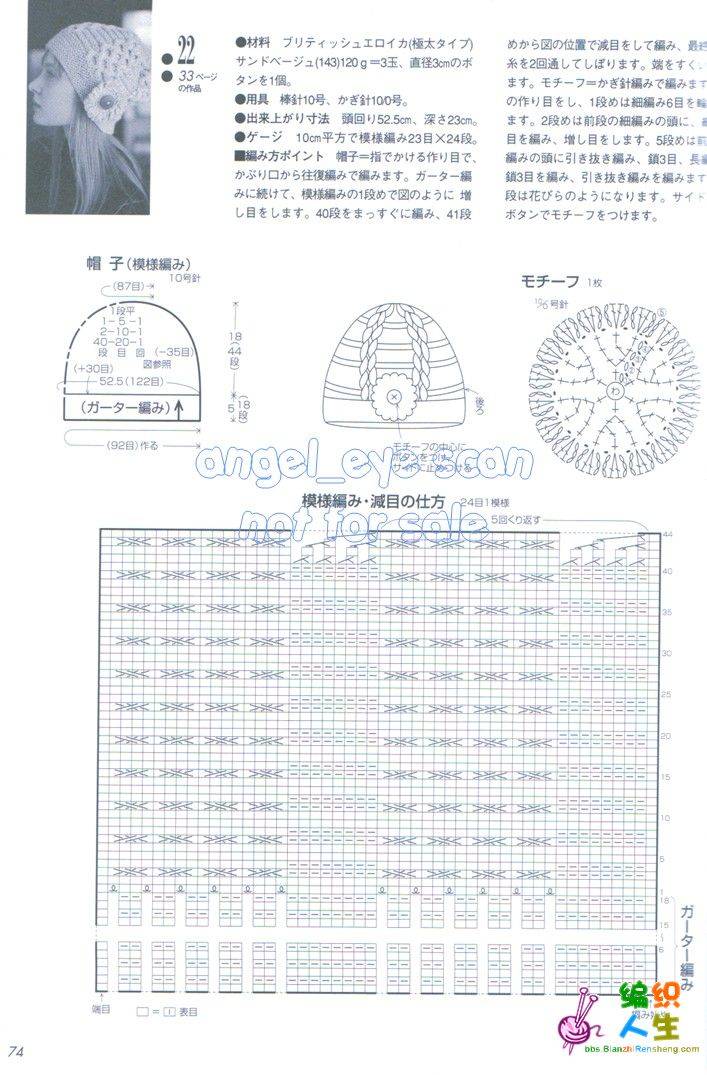 22
33ページ
の作品
●材料　ブリティッシュエロイカ(極太タイプ)
サンドベージュ(143)120g＝3玉、直径3cmのボ
タンを1個。
●用具　棒針10号、かぎ針10/0号。
●出来上がり寸法　頭回り52.5cm、深さ23cm。
●ゲージ　10cm平方で模様編み23目×24段。
■編み方ポイント　帽子＝指でかける作り目で、
かぶり口から往復編みで編みます。ガーター編
みに続けて、模様編みの1段めで図のように 増
し目をします。40段をまっすぐに編み、41段
めから図の位置で減目をして編み、最終
糸を2回通してしぼります。端をすくい
ます。モチーフ＝かぎ針編みで編みます
の作り目をし、1段めは細編み6目を
ます。2段めは前段の細編みの頭に、
目を編み、増し目をします。5段めは前
編みの頭に引き抜き編み、鎖3目、長編
鎖3目を編み、引き抜き編みを編みます
段は花びらのようになります。サイド
ボタンでモチーフをつけます。
帽 子(模様編み)
10号針
(87目)
1段平
1-5-1
2-10-1
40-20-1
段 目 回
(-35目)
図参照
(+30目)
52.5(122目)
(ガーター編み)
(92目)作る
18(44段)
5(18段)
後ろ
モチーフの中心に
ボタンをつけ、
サイドに止めつける
モチーフ 1枚
10/0号針
⑤
わ
angel_eye scan
not for sale
模様編み・減目の仕方
24目1模様
5回くり返す
44
40
35
30
25
20
15
10
5
1
18
15
6
ガーター編み
端目
□＝｜表目
編み始め
编织
人生
bbs.BianzhiRensheng.com
74